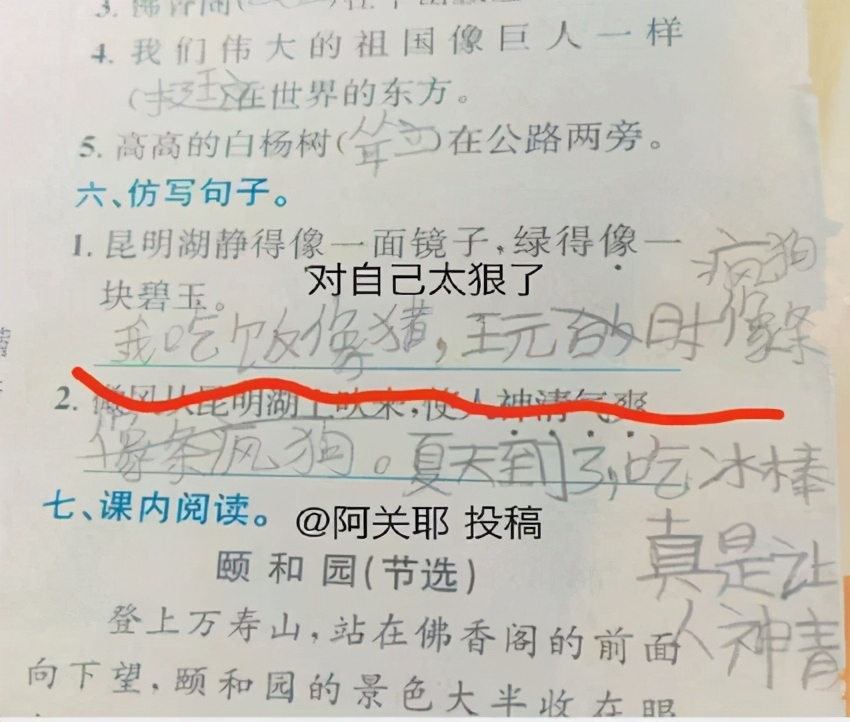 4. 我们伟大的祖国像巨人一样
(挺立)在世界的东方。
5. 高高的白杨树(耸立)在公路两旁。
六、仿写句子。
1. 昆明湖静得像一面镜子,绿得像一
块碧玉。
对自己太狠了
疯狗
我吃饭像猪,玩的时像条
2. 微风从昆明湖上吹来,使人神清气爽
像条疯狗。夏天到了,吃冰棒
真是让
人神青
七、课内阅读。
@阿关耶 投稿
颐和园(节选)
登上万寿山,站在佛香阁的前面
向下望,颐和园的景色大半收在眼